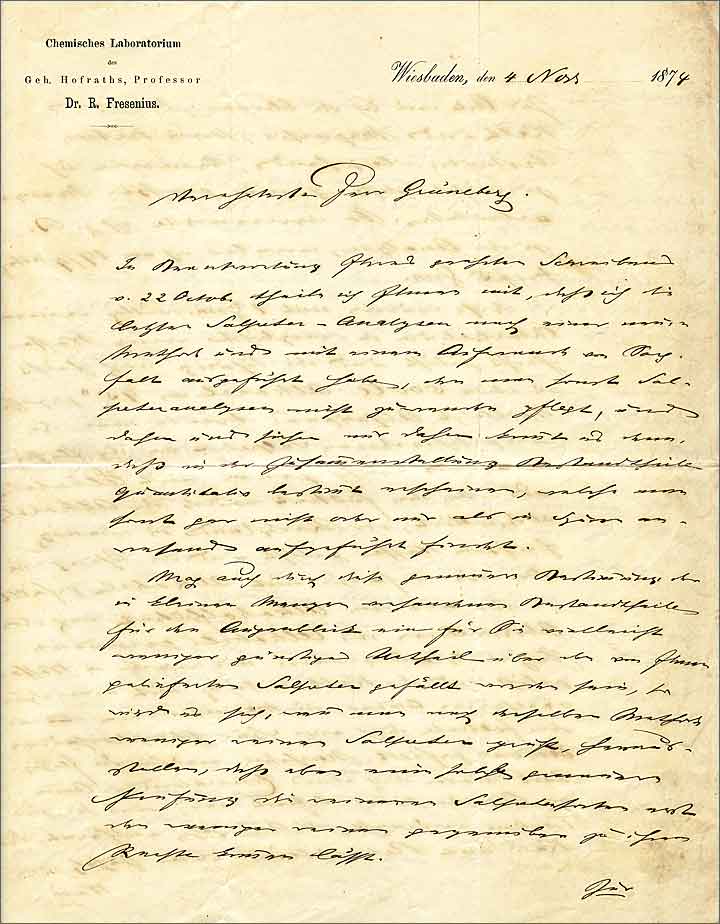 Chemisches Laboratorium
des
Geh. Hofraths, Professor
Dr. R. Fresenius.
Wiesbaden, den 4 Nov 1874
Verehrtester Herr Grüneberg.
In Beantwortung Ihres geehrten Schreibens
v. 22 Octob. theile ich Ihnen mit, daß ich die
letzten Salpeter-Analysen nach einer neuen
Methode und mit einem Aufwand von Sorg-
falt ausgeführt habe, den man sonst Sal-
peteranalysen nicht zuzuwenden pflegt, und
daher kommt es denn,
daß in der Zusammenstellung Bestandtheile
quantitativ bestimt erscheinen, welche man
sonst gar nicht oder nur als in Spuren an-
wesend aufgeführt findet.
Mag auch durch diese genauere Bestimung der
in kleinen Mengen vorhandenen Bestandtheile
für den Augenblick ein für Sie vielleicht
weniger günstiges Urtheil über den von Ihnen
gelieferten Salpeter gefällt worden sein, so
wird es sich, wenn man nach derselben Methode
weniger reinen Salpeter prüft, heraus-
stellen, daß eben eine solche genauere
Prüfung die reineren Salpetersorten erst
den weniger reinen gegenüber zu ihrem
Rechte kommen läßt.
Zur